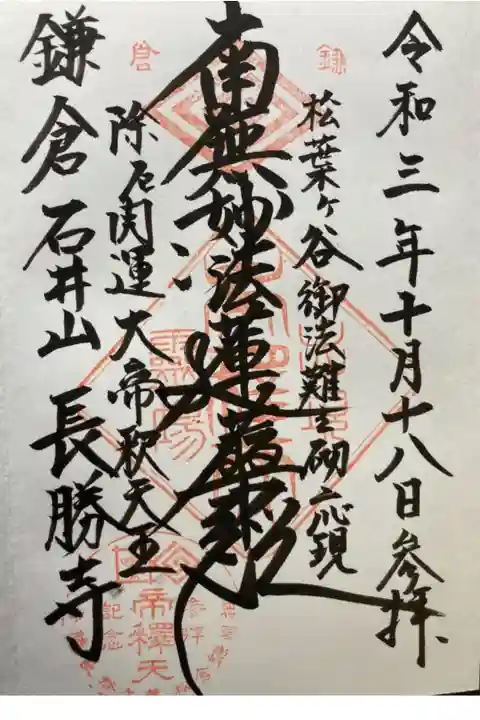 令和三年十月十八日参拝
松葉ヶ谷御法難之砌応現
南無妙法蓮華経
除厄開運大帝釈天王
鎌倉石井山長勝寺
鎌倉
霊場
帝釋天
参拝
記念